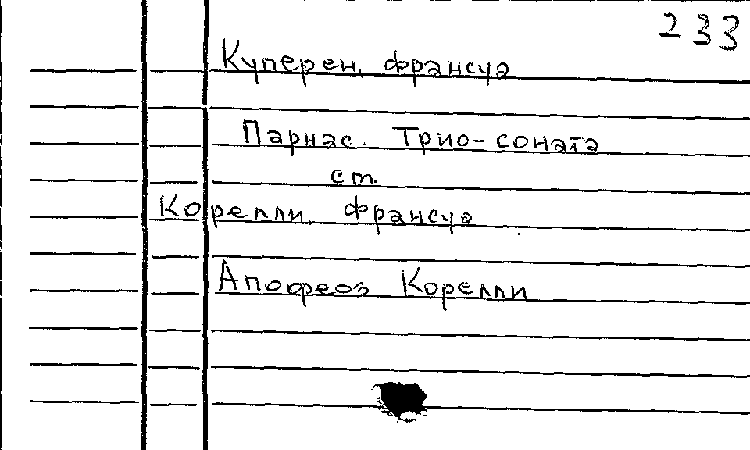 233
Куперен, франсуа
Парнас. Трио-соната
ст.
Корелли, франсуа
Апофеоз Корелли